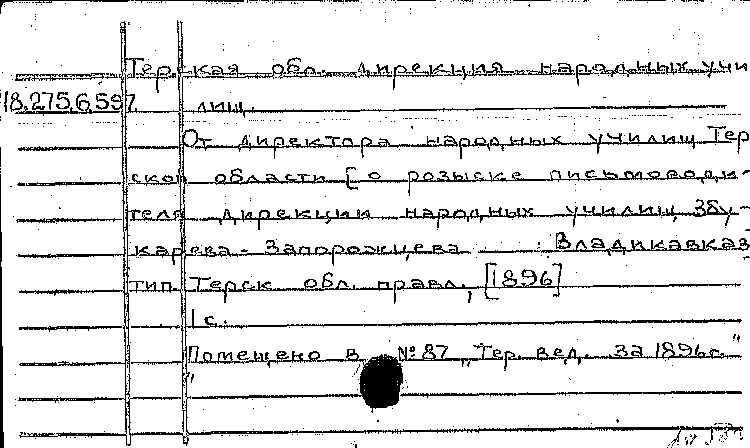 Терская обл. дирекция народных учи
18.275.6.597 лищ.
От директора народных училищ Тер
ской области [о розыске письмоводи-
теля дирекции народных училищ Збу-
карева-Запорожцева Владикавказ
тип. Терск обл. правл., [1896]
1 с.
Помещено в № 87 „Тер. вед. за 1896 г."
"